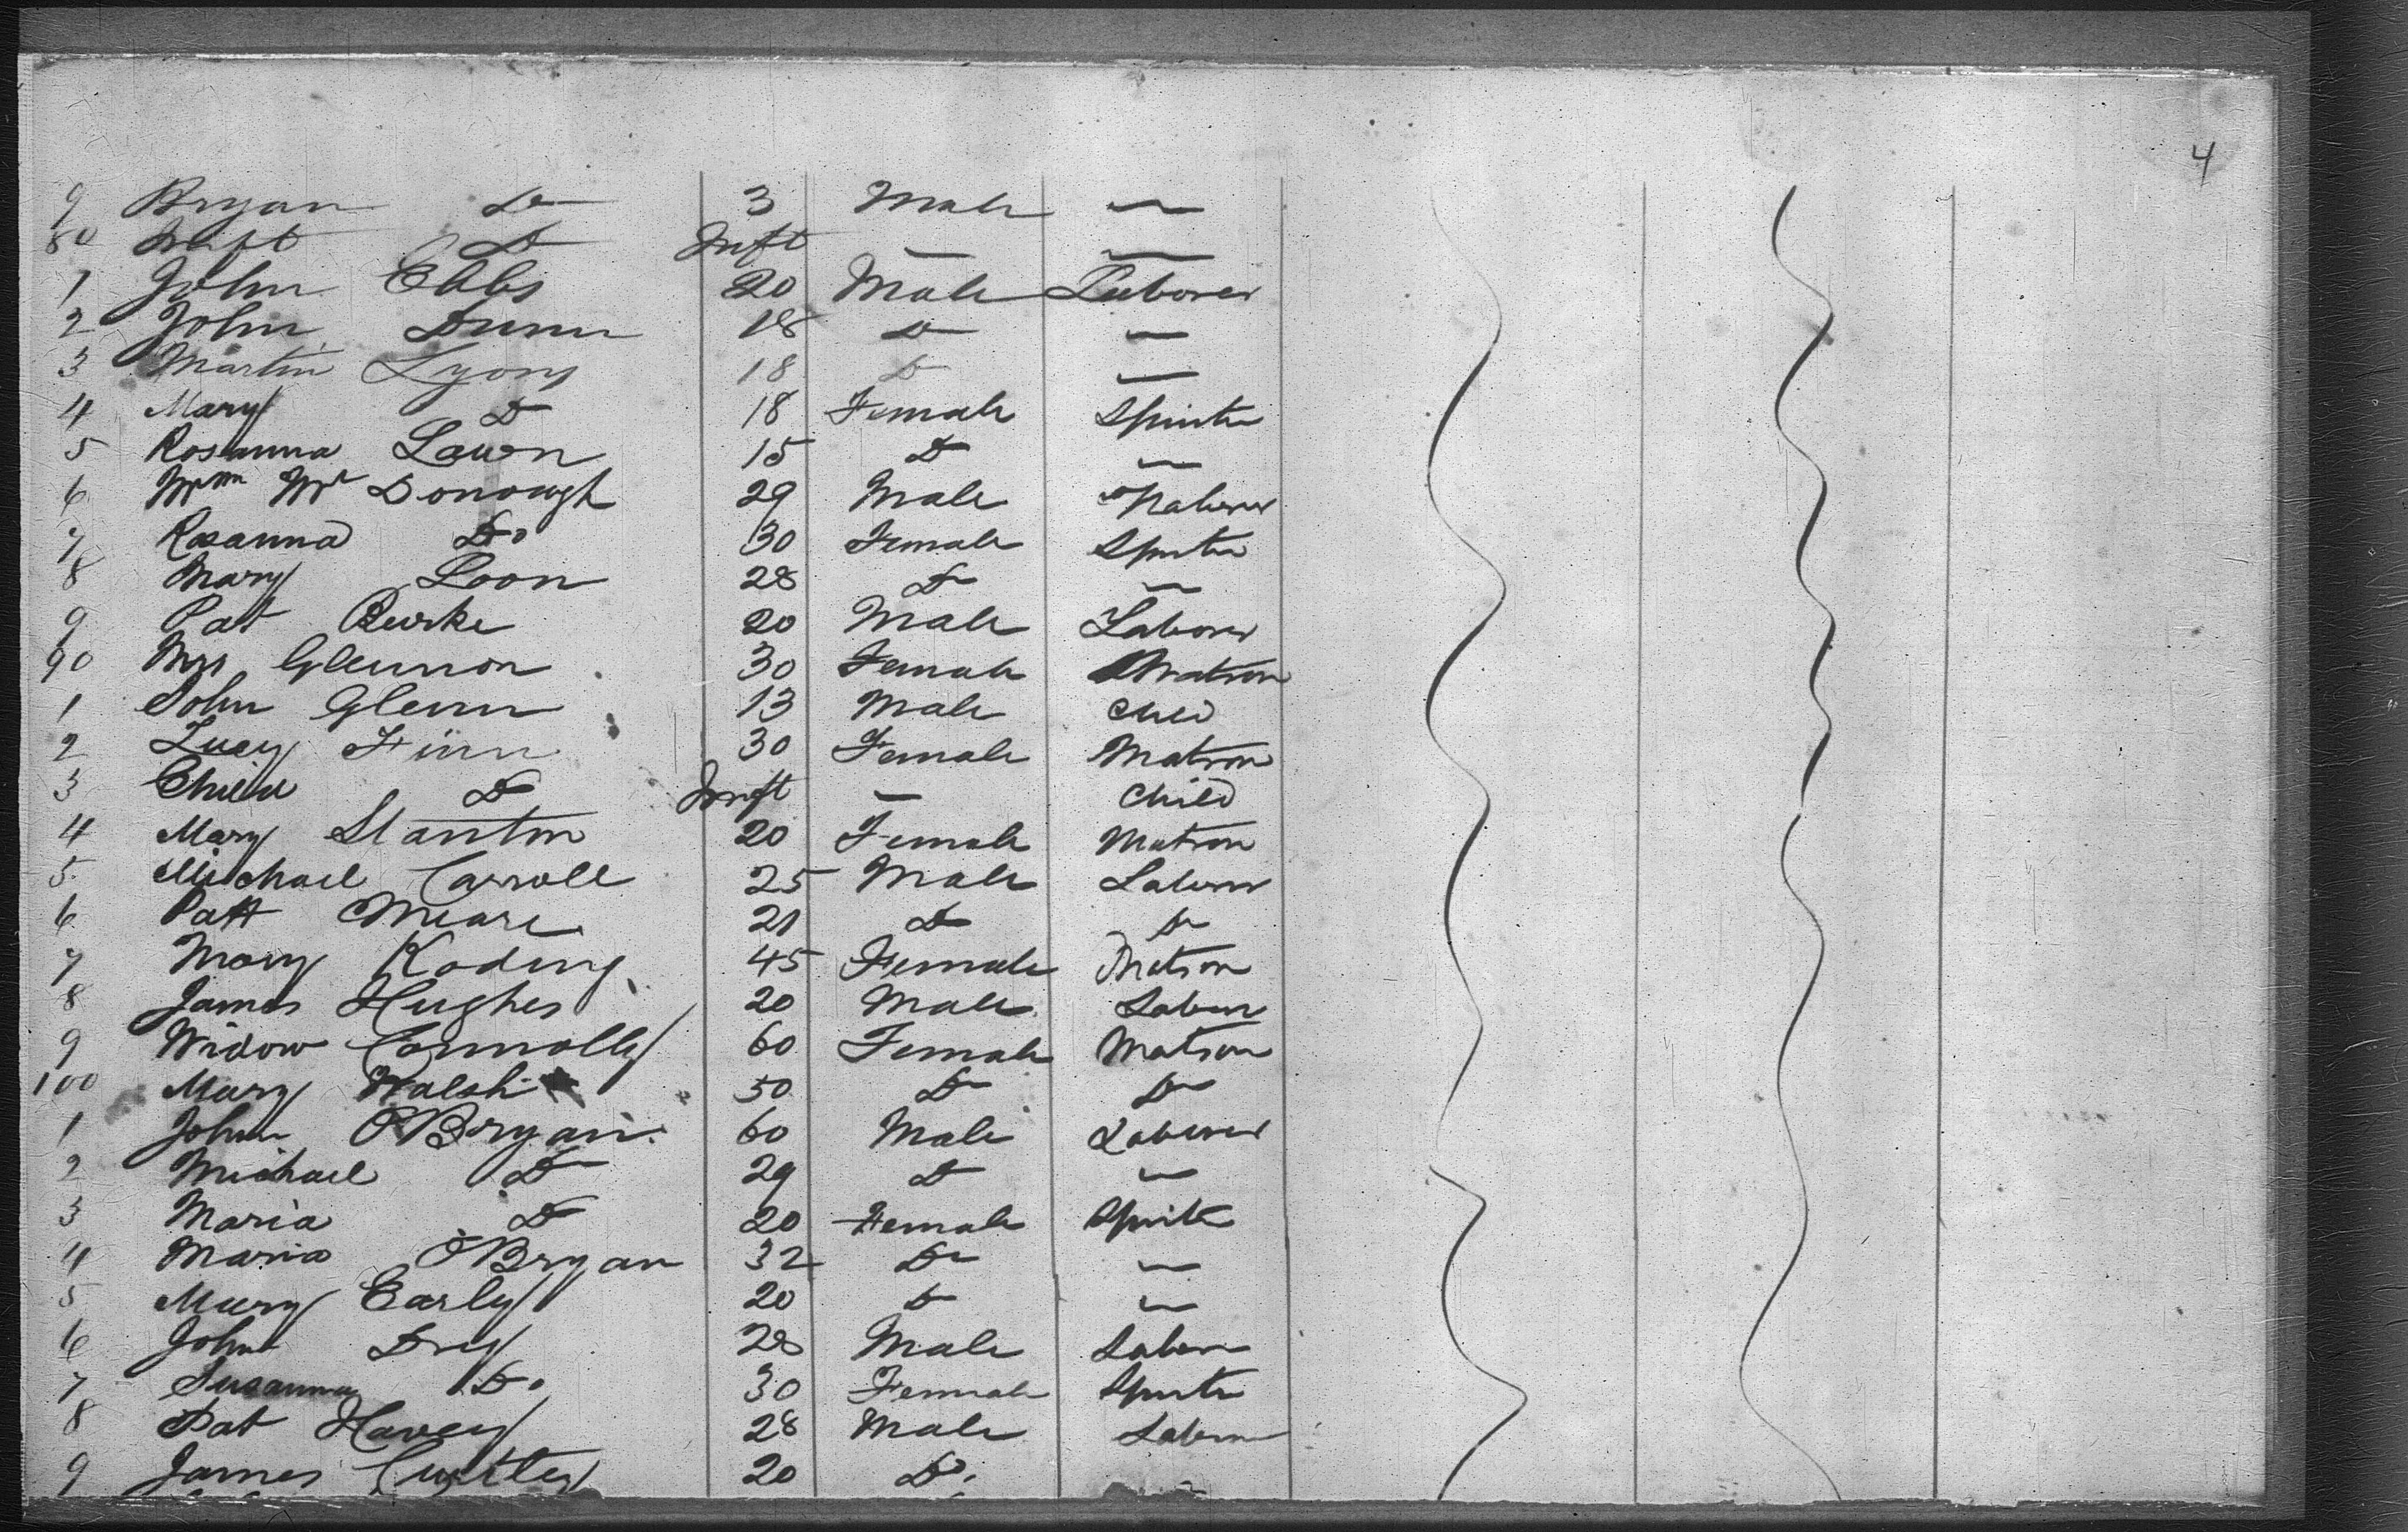 4
9 Bryan Do 3 Male —
80 Inft Do Inft — —
1 John Ebbs 20 Male Laborer
2 John Dunn 18 Do —
3 Martin Lyons 18 Do —
4 Mary Do 18 Female Spinster
5 Rosanna Lawn 15 Do —
6 Wm Mc Donough 29 Male Laborer
7 Rosanna Do 30 Female Spinster
8 Mary Loon 28 Do —
9 Pat Burke 20 Male Laborer
90 Mrs Glennon 30 Female Matron
1 John Glenn 13 Male Child
2 Lucy Finn 30 Female Matron
3 Child Do Inft — Child
4 Mary Stanton 20 Female Matron
5 Michael Carroll 25 Male Laborer
6 Patt 21 Do Do
7 Mary 45 Female Matron
8 James Hughes 20 Male Laborer
9 Widow Connolly 60 Female Matron
100 Mary Walsh 50 Do Do
1 John O'Bryan 60 Male Laborer
2 Michael Do 29 Do —
3 Maria Do 20 Female Spinster
4 Maria O'Bryan 32 Do —
5 Mary Early 20 Do —
6 John 28 Male Laborer
7 Susanna Do 30 Female Spinster
8 Pat Havey 28 Male Laborer
9 James 20 Do